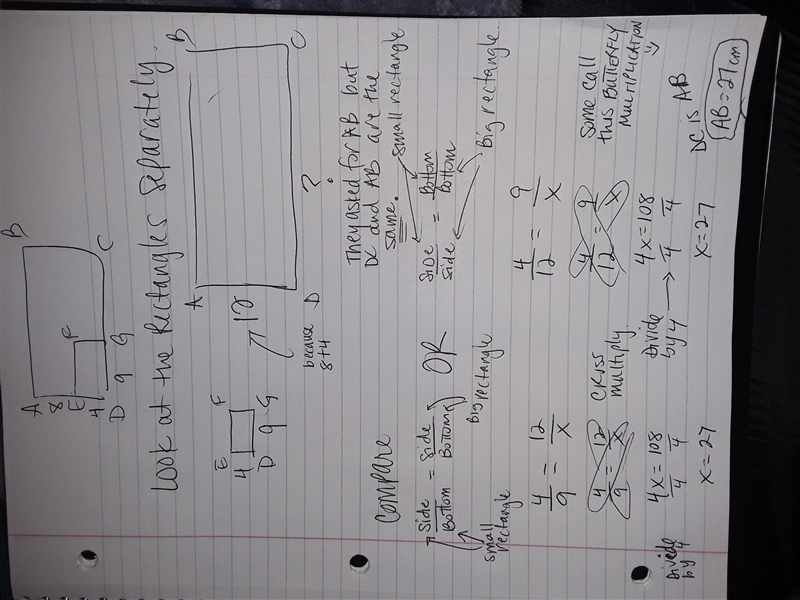 A B
8
E F
4
D 9 G C
Look at the Rectangles separately.
A B
E F
4 12
D 9 G
because D ? C
8+4
They asked for AB but
DC and AB are the
same.
small rectangle
COMPARE
Side = Side OR Side = Bottom
Bottom Bottom Side Bottom
small Big rectangle Big rectangle.
rectangle
4 = 12 4 = 9
9 X 12 X
4 = 12 CRISS 4 = 9 Some call
9 X multiply. 12 X this BUTTERFLY
MULTIPLICATION
Divide 4X = 108 Divide 4X = 108
by 4 4 4 by 4 → 4 4
X = 27 X = 27 DC is AB
AB = 27 cm